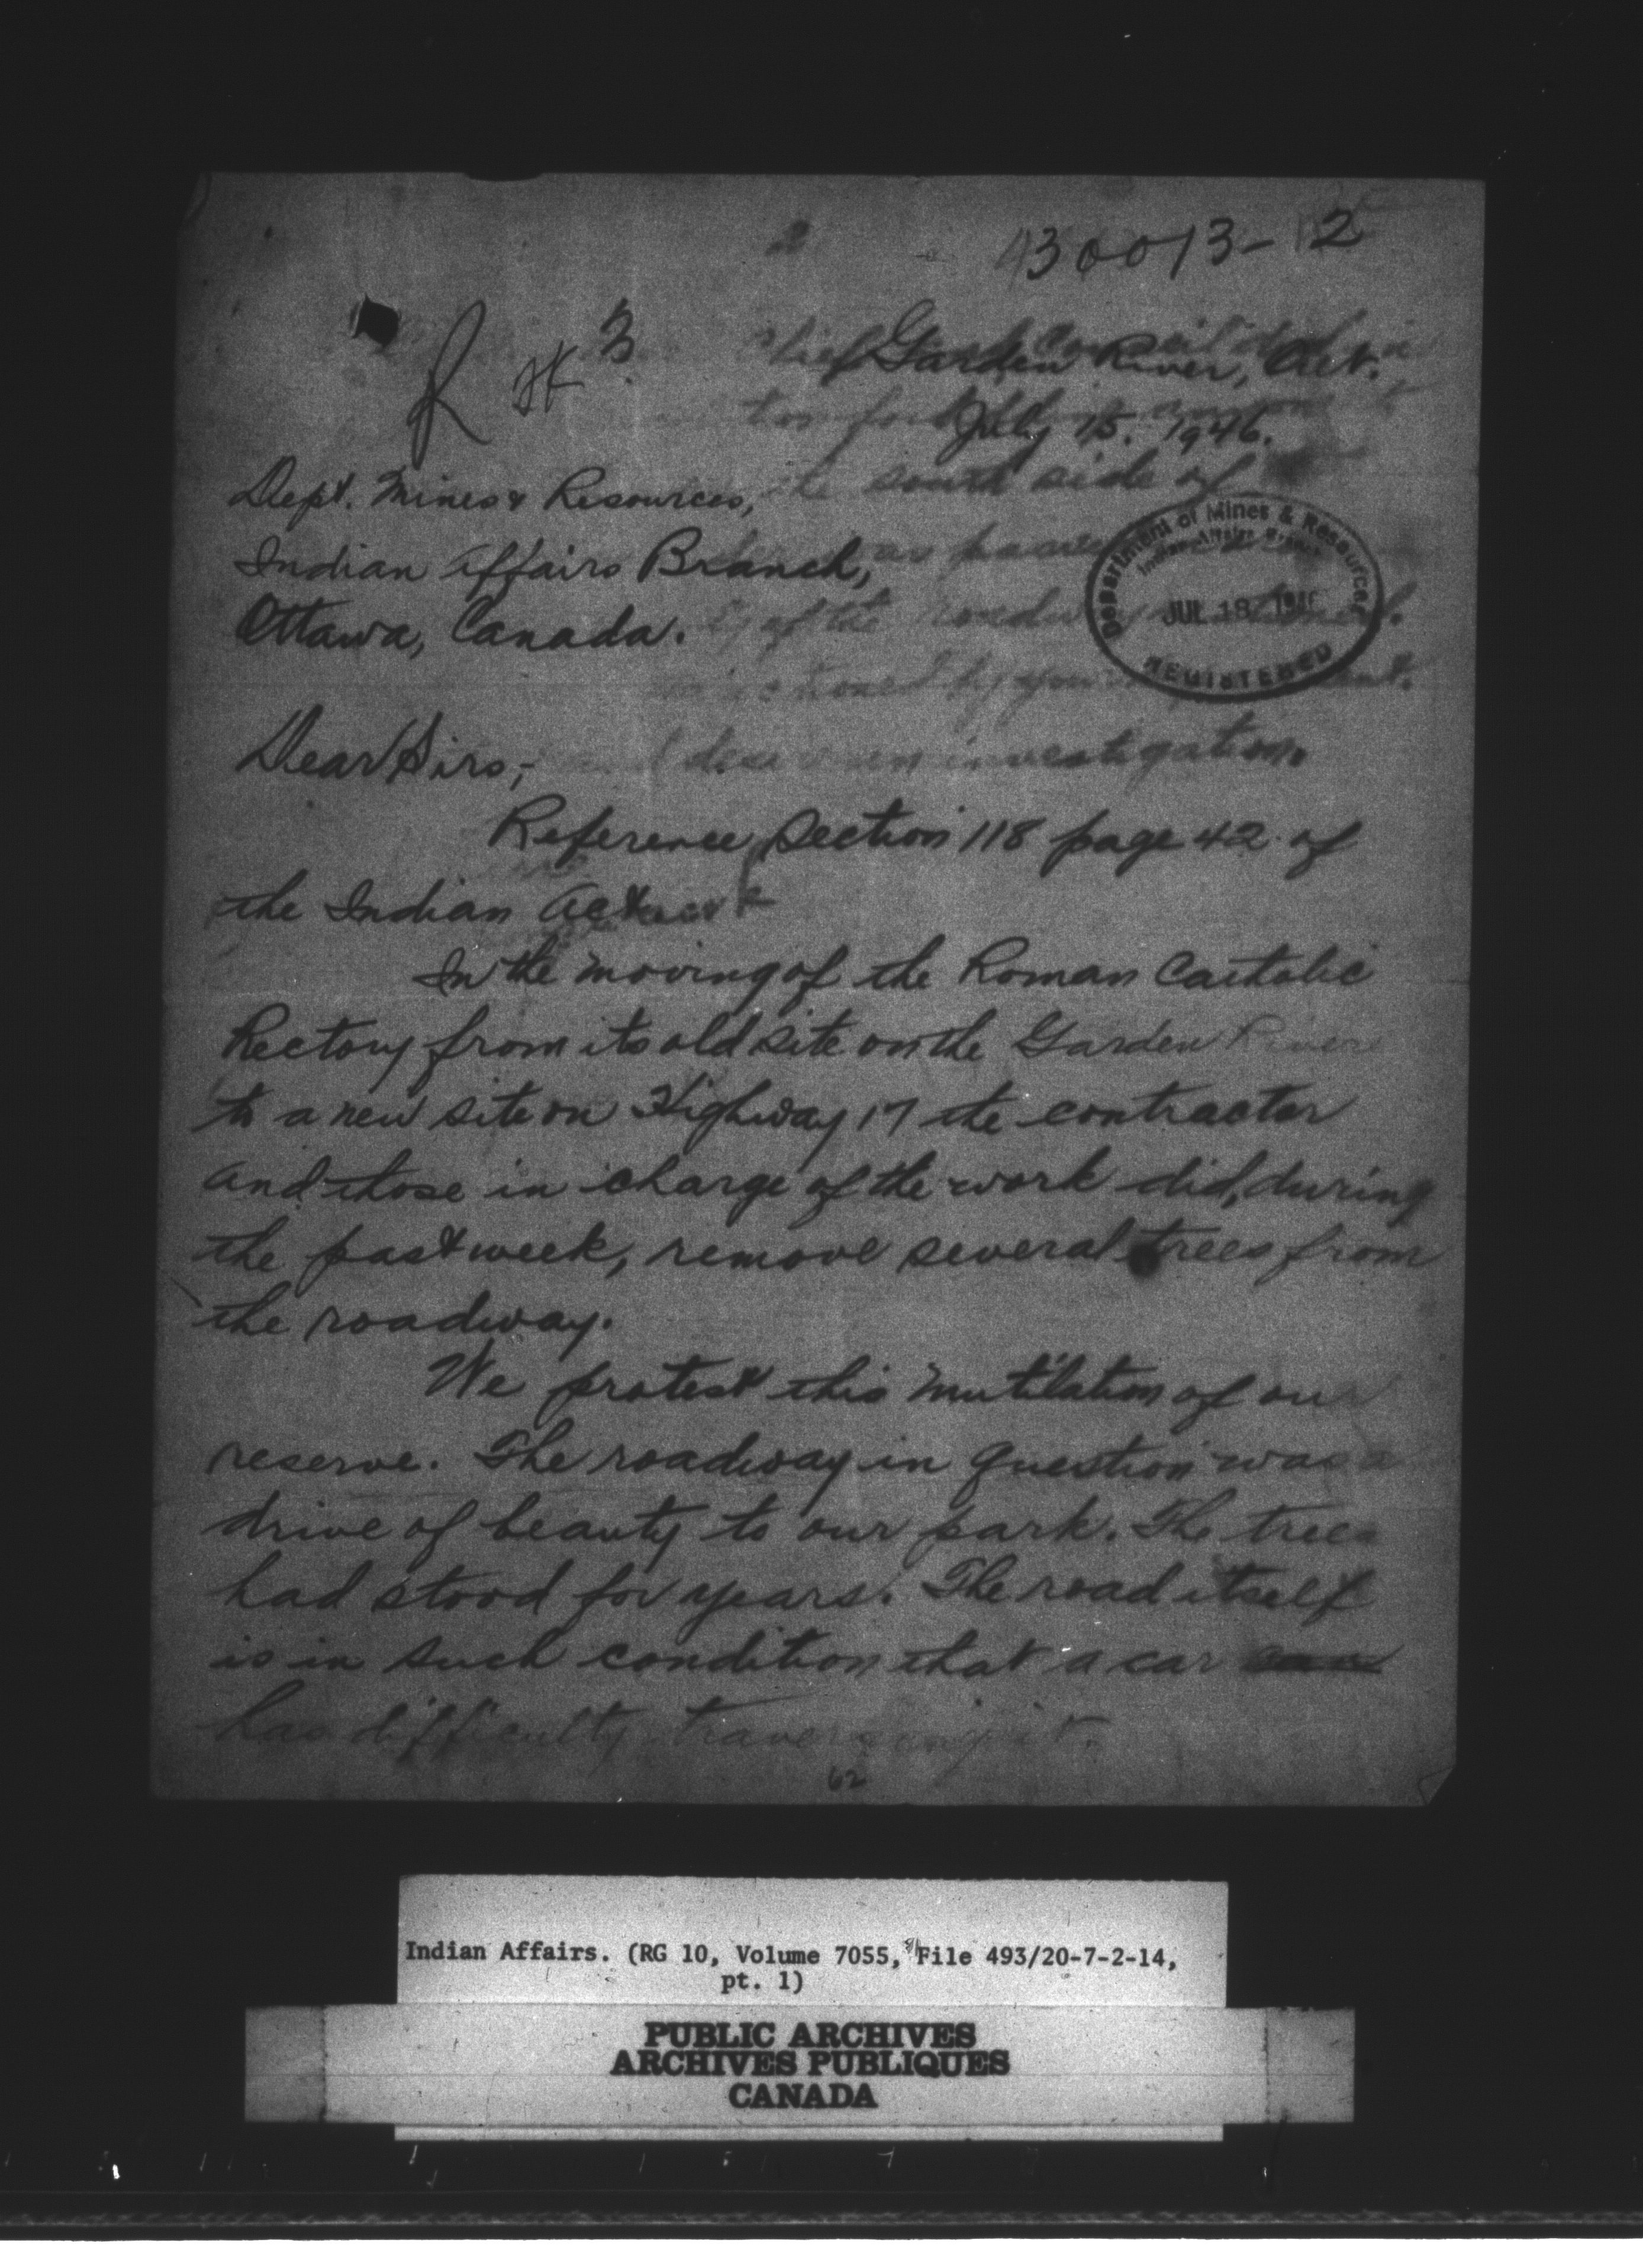 430013-2
R H 3
Garden River, Ont.
July 15, 1946.
Dept. Mines & Resources,
Indian Affairs Branch,
Ottawa, Canada.
Department of Mines & Resources
Indian Affairs Branch
JUL 18 1946
REGISTERED
Dear Sirs,-
Reference Section 118 page 42 of
the Indian Act
In the moving of the Roman Catholic
Rectory from its old site on the Garden River
to a new site on Highway 17 the contractor
and those in charge of the work did, during
the past week, remove several trees from
the roadway.
We protest this mutilation of our
reserve. The roadway in question was a
drive of beauty to our park. The trees
had stood for years. The road itself
is in such condition that a car
has difficulty traversing it.
62
Indian Affairs. (RG 10, Volume 7055, File 493/20-7-2-14,
pt. 1)
PUBLIC ARCHIVES
ARCHIVES PUBLIQUES
CANADA